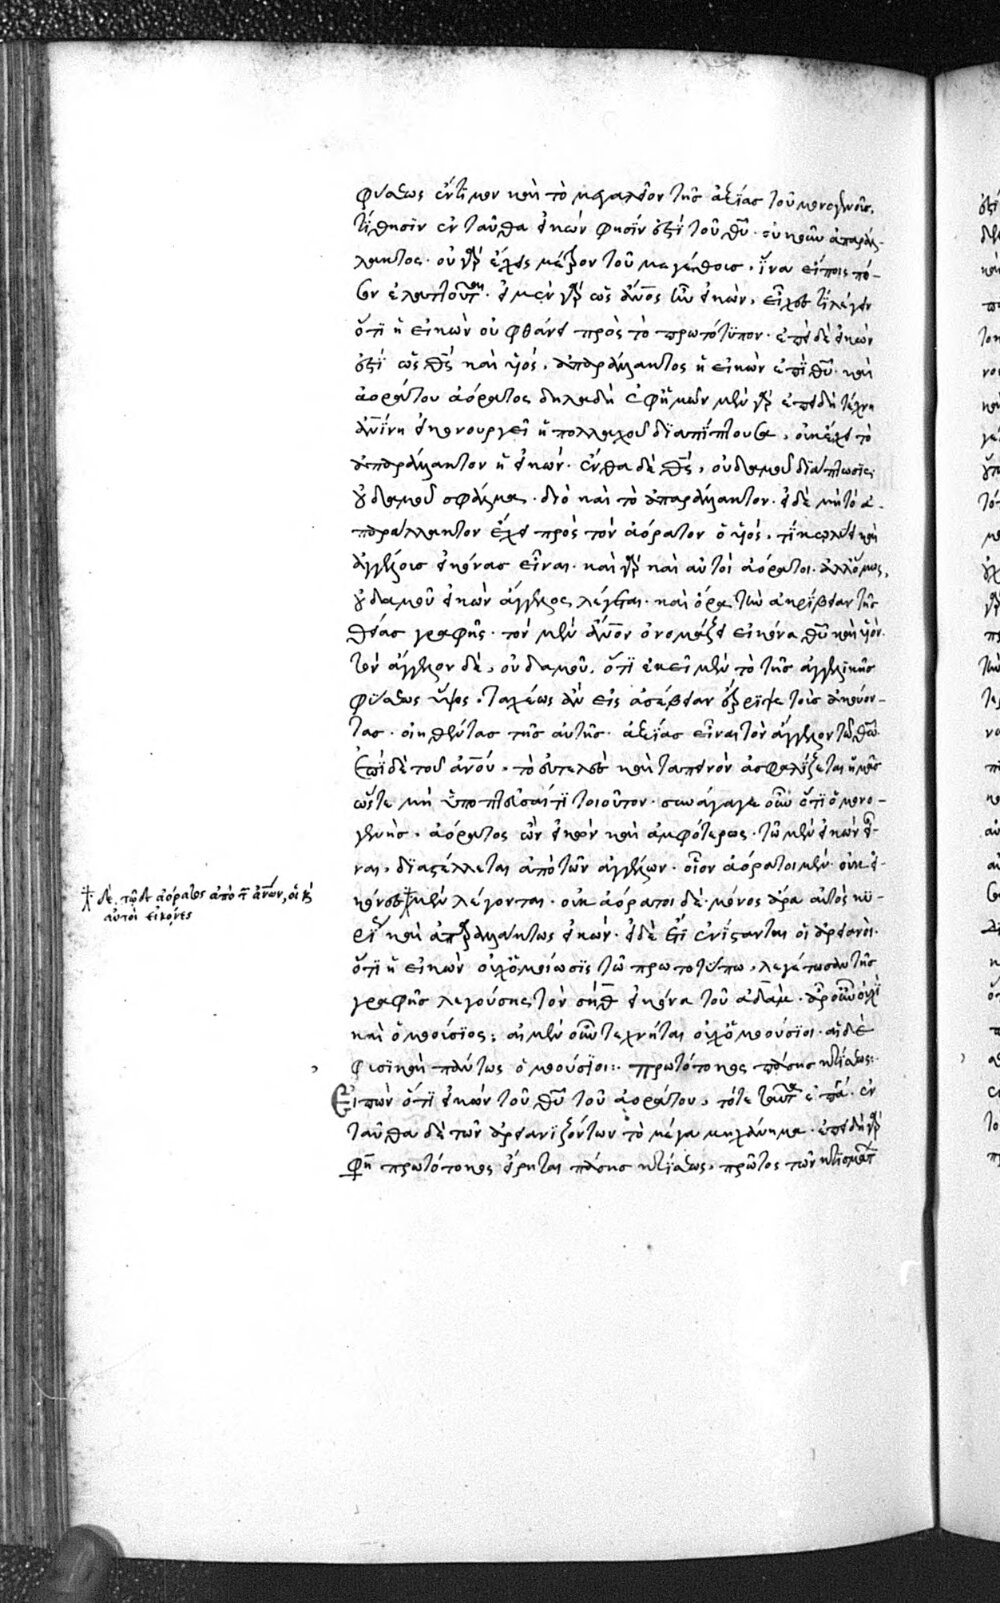 φύσεως ἔντιμον καὶ τὸ μεγαλεῖον τῆς ἀξίας τοῦ μονογενοῦς.
τίθησιν ἐνταῦθα εἰκών φησίν ἐστι τοῦ θυ̅· οὐκοῦν ἀπαράλ-
λακτος· οὐ γὰρ ἔχεις μεῖζον τοῦ μεγέθους· ἵνα εἴποις
ἐλαττοῦται· εἰ μὲν γὰρ ὡς ἄνο̅ς ἦν εἰκών, εἶχες τὶ λέγειν
ὅτι ἡ εἰκὼν οὐ φθάνει πρὸς τὸ πρωτότυπον· ἐπεὶ δὲ εἰκών
ἐστι ὡς θς̅ καὶ υἱός, ἀπαράλλακτος ἡ εἰκὼν ἐπὶ θυ̅· καὶ
ἀοράτου ἀόρατος δηλαδὴ ἐφ' ἡμῶν μὲν γὰρ ἐπειδὴ τέχνη
ἀνί̅νη εἰκονουργεῖ ἡ πολλαχοῦ διαπίπτουσα, οὐκ ἔχει τὸ
ἀπαράλλακτον ἡ εἰκών· ἔνθα δὲ θς̅, οὐδαμοῦ διάπτωσις·
οὐδαμοῦ σφάλμα· διὸ καὶ τὸ ἀπαράλλακτον· εἰ δὲ μὴ τὸ ἀ-
παράλλακτον ἔχει πρὸς τὸν ἀόρατον ὁ υἱός, τί κωλύει καὶ
ἀγγέλους εἰκόνας εἶναι· καὶ γὰρ καὶ αὐτοὶ ἀόρατοι· ἀλλ' ὅμως,
οὐδαμοῦ εἰκὼν ἄγγελος λέγεται· καὶ ὅρα τὴν ἀκρίβειαν τῆς
θείας γραφῆς· τὸν μὲν ἄνο̅ν ὀνομάζει εἰκόνα θυ̅ καὶ υἱόν·
τὸν ἄγγελον δὲ, οὐδαμοῦ, ὅτι ἐκεῖ μὲν τὸ τῆς ἀγγελικῆς
φύσεως ὕψος, ταχέως ἂν εἰς ἀσέβειαν ἐξέριψε τοὺς ἀκούον-
τας· οἰηθέντας τῆς αὐτῆς ἀξίας εἶναι τὸν ἄγγελον τῷ θω̅.
ἐπὶ δὲ τοῦ ἀνο̅υ, τὸ εὐτελὲς καὶ ταπεινὸν ἀσφαλίζεται ἡμᾶς
ὥστε μὴ ὑποπτεῦσαί τι τοιοῦτον· συνάγαγε οὖν ὅτι ὁ μονο-
γενὴς, ἀόρατος ὢν εἰκὼν καὶ ἀμφότερως· τῷ μὲν εἰκὼν εἶ-
ναι, διαστέλλεται ἀπὸ τῶν ἀγγέλων· οἷον ἀόρατοι μὲν· οὐκ εἰ-
κόνες μὲν λέγονται· οὐκ ἀόρατοι δὲ· μόνος ἄρα αὐτὸς κυ-
ρίως καὶ ἀπαραλλάκτως εἰκών· εἰ δὲ ἔτι ἐνίστανται οἱ ἀρειανοὶ·
ὅτι ἡ εἰκὼν οὐχ ὁμοίωσις τῷ πρωτοτύπῳ, λεγέτωσαν τῆς
γραφῆς λεγούσης τὸν σὴθ εἰκόνα τοῦ ἀδὰμ· ἆρ' οὖν οὐχὶ
καὶ ὁμοούσιος; αἱ μὲν οὖν τεχνηταὶ οὐχ ὁμοούσιοι· αἱ δὲ
φυσικαὶ πάντως ὁμοούσιοι:· πρωτότοκος πάσης κτίσεως:
Εἰπὼν ὅτι εἰκὼν τοῦ θυ̅ τοῦ ἀοράτου, τότε ταύτην ἐπά· ἐν
ταῦθα δὲ τῶν ἀρειανιζόντων τὸ μέγα μηχάνημα· ἐπειδὴ γὰρ
φη πρωτότοκος εἴρηται πάσης κτίσεως, πρῶτος τῶν κτισμάτ
δὲ, τῷ δὲ ἀόρατος ἀπὸ τ ἀνω̅ν, οἱ κ
αὐτοὶ εἰκόνες